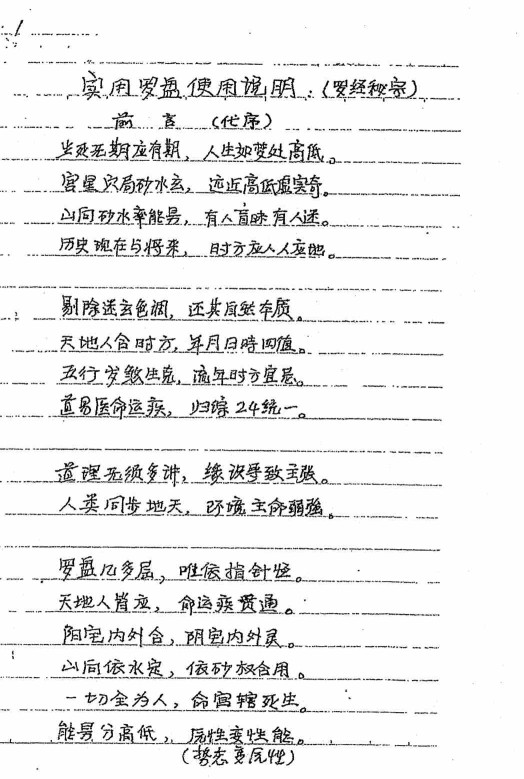 1
实用罗盘使用说明:(罗经秘宗)
前言 (代序)
生死无期应有期, 人生如梦处高低。
宫星穴局砂水玄, 远近高低虚实奇。
山向砂水率能量, 有人盲昧有人迷。
历史现在与将来, 时方应人人应地。
剔除迷玄色调, 还其自然本质。
天地人合时方, 年月日時四值。
五行岁煞生克, 流年时方宜忌。
道易医命运疾, 归综24统一。
道理无须多讲, 缘识导致主张。
人类同步地天, 环境主命弱強。
罗盘几多层, 唯依指针竖。
天地人皆应, 命运疾贯通。
阳宅内外合, 阴宅内外灵。
山向依水定, 依砂权合用。
一切全为人, 命宫辖死生。
能量分高低, 质性变性能。
(势态变质性)